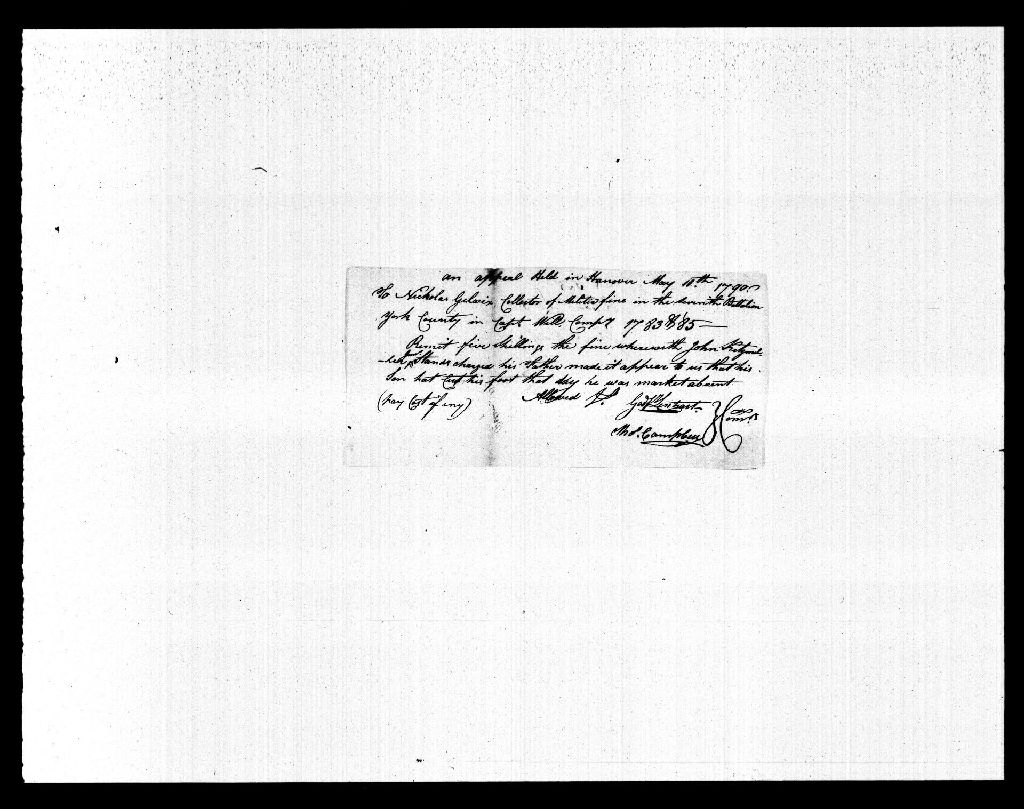 an appeal Held in Hanover May 18th 1790
To Nicholas Gelwix Collector of Militia fine in the seventh Battalion
York County in Capt Will Compy 1783 & 85
Remit five shillings the fine wherewith John
Stands charged his Father made it appear to us that his
Son hat Cut his foot that day he was market absent
(pay Cost if eny) Allowed
Thos. Campbell